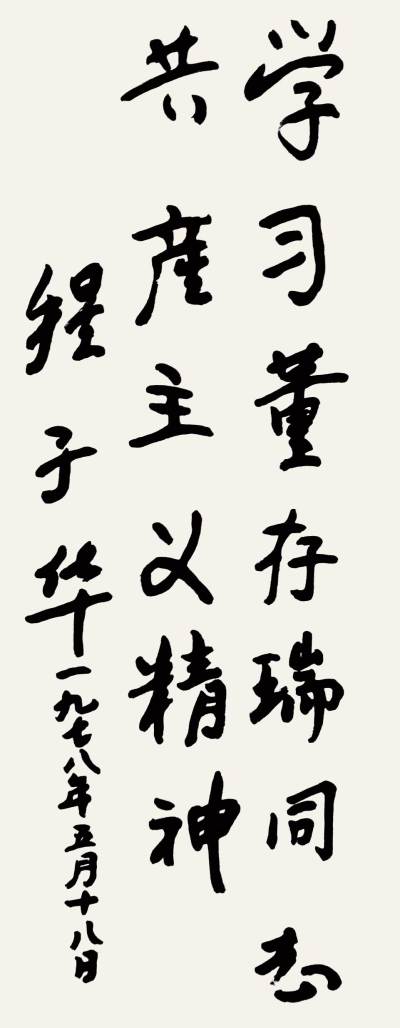 学习董存瑞同志
共産主义精神
程子华一九七八年五月十八日